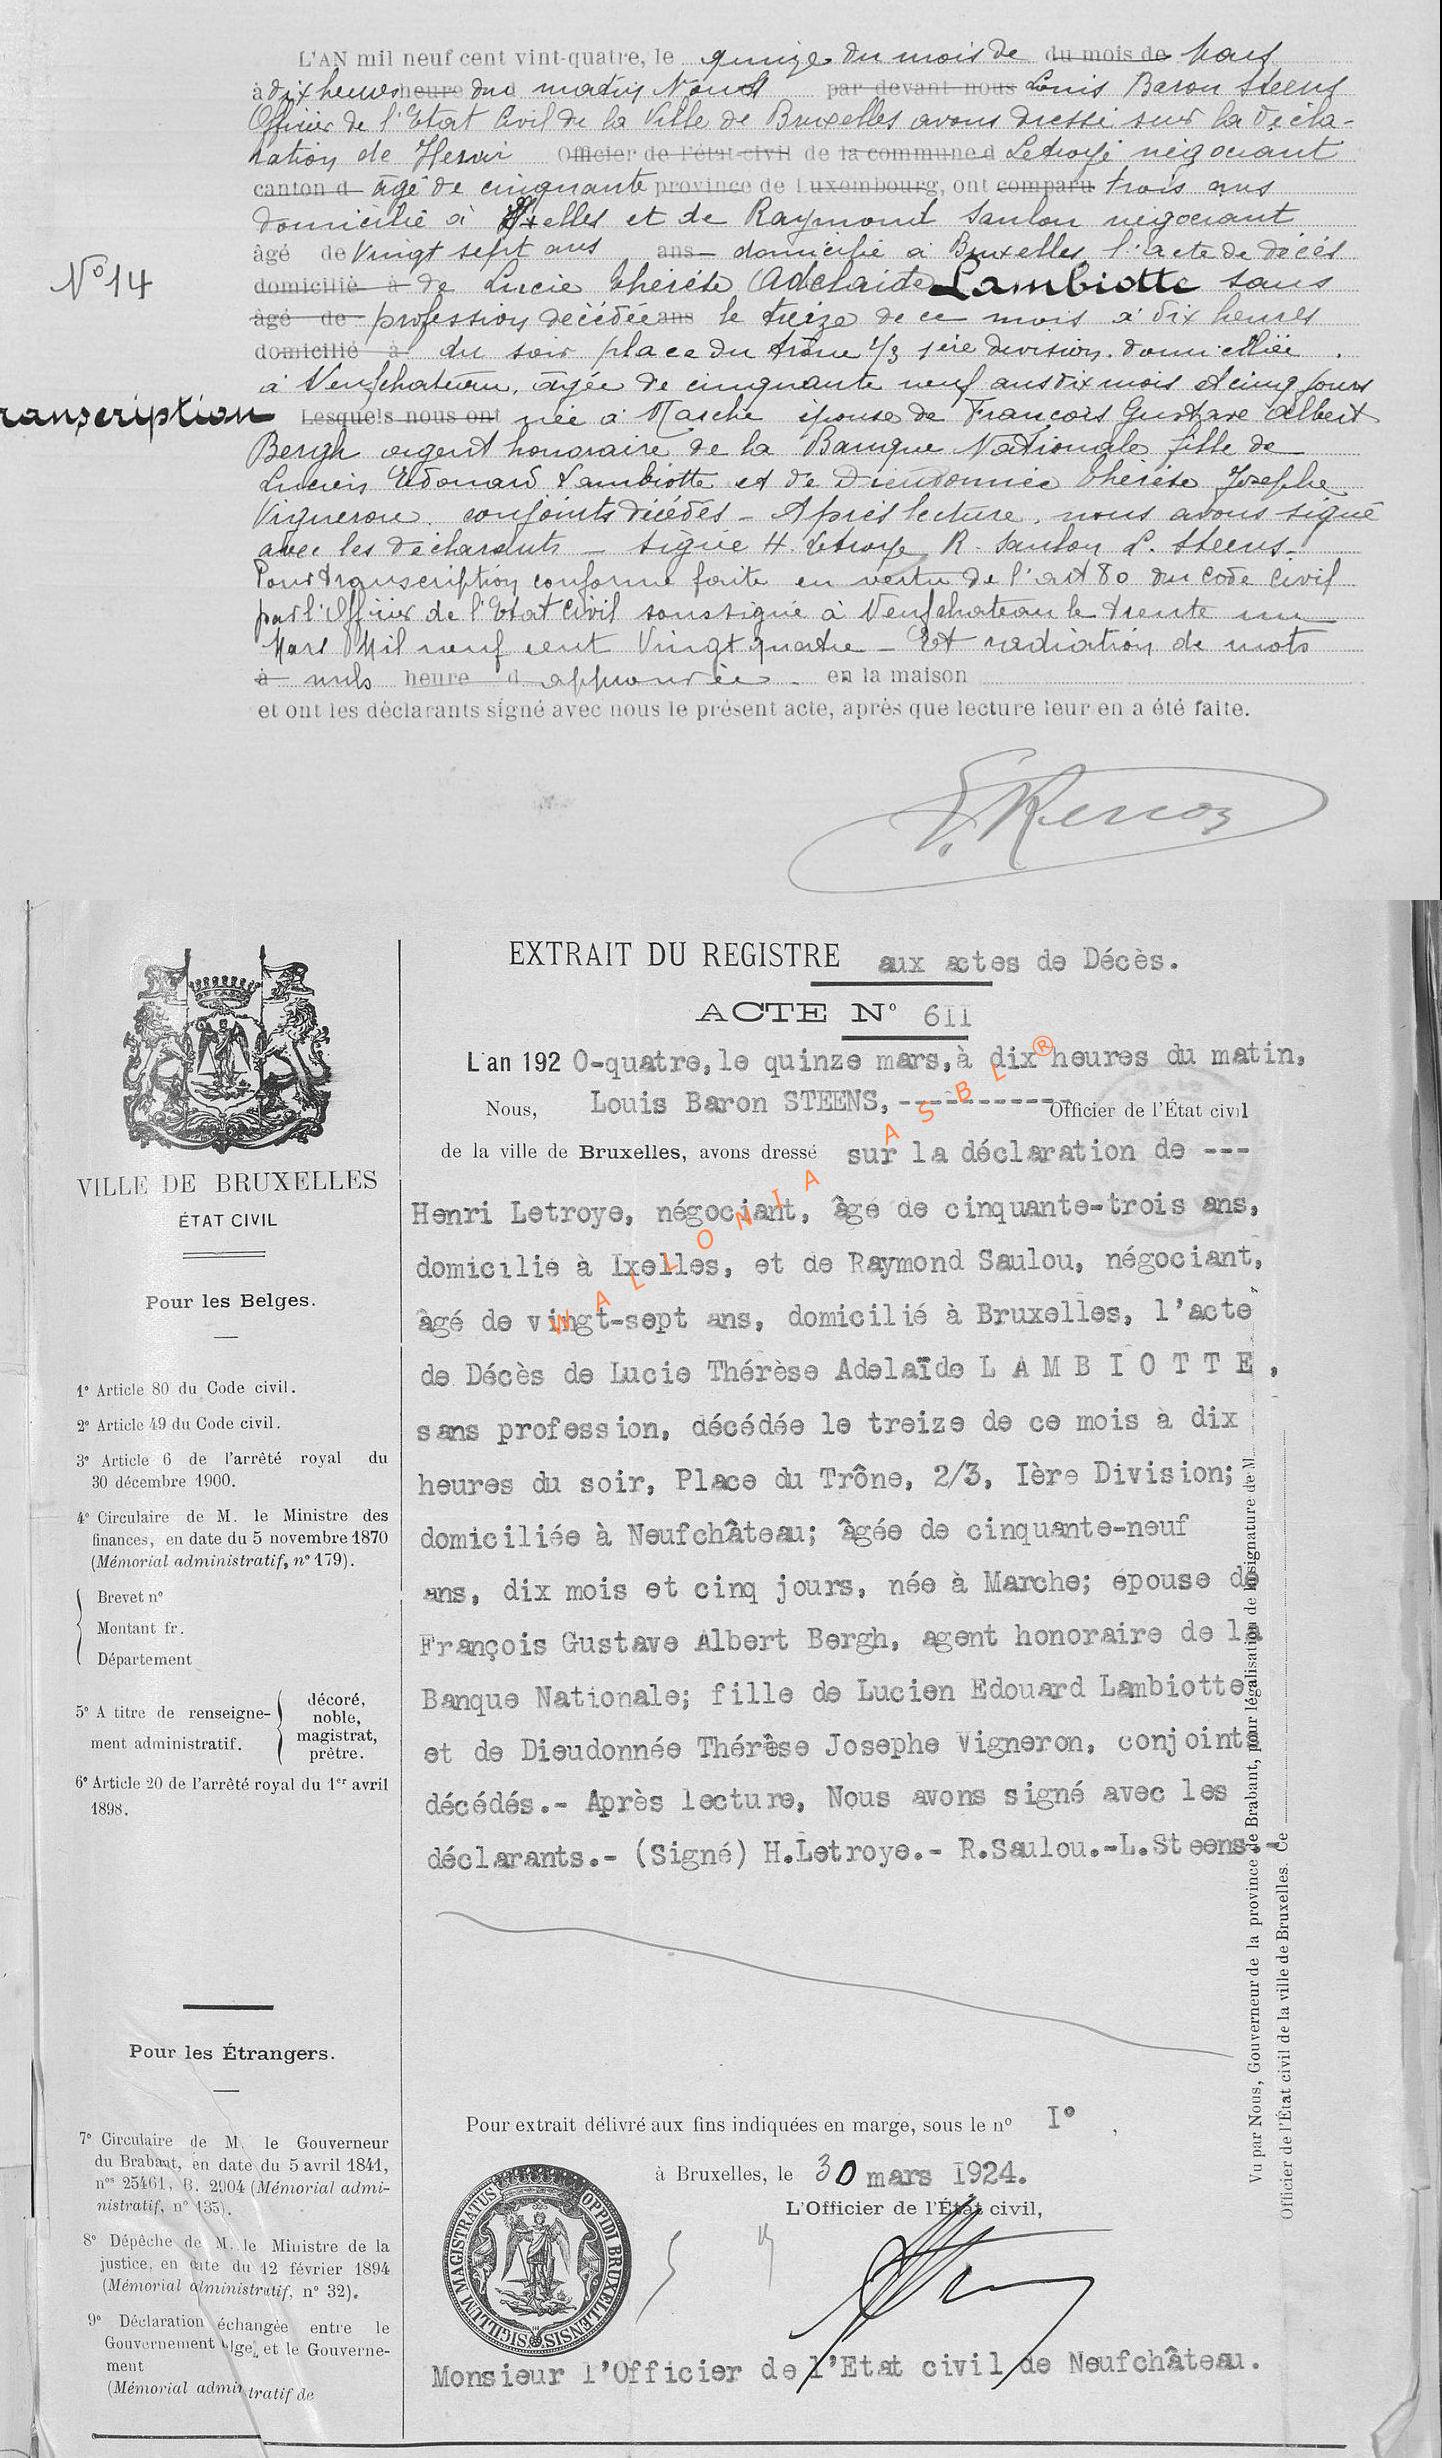 L'AN mil neuf cent vint-quatre, le quinze du mois de du mois de Mars
à dix heures heure du d matin Nous par devant nous Louis Baron Steens
Officier de l'Etat Civil de la Ville de Bruxelles avons dressé sur la Décla-
ration de Henri Officier de l'état civil de la commune d Letroye négociant
canton d âgé de cinquante province de Luxembourg, ont comparu trois ans
domicilié à Ixelles et de Raymond Saulou négociant
âgé de Vingt sept ans ans domicilié à Bruxelles l'acte de décés
N° 14
domicilié à de Lucie Thérèse Adelaide Lambiotte sans
âgé de profession décédée ans le treize de ce mois à dix heures
domicilié à du soir place du trône 2/3 1ère division. domiciliée
à Neufchateau, agée de cinquante neuf ans dix mois et cinq jours
ranscription
Lesquels nous ont née à Marche épouse de François Gustave Albert
Bergh agent honoraire de la Banque Nationale fille de
Lucien Edouard Lambiotte et de Dieudonnée Thérèse Josephe
Vigneron. conjoints décédés - Après lecture, nous avons signé
avec les déclarants - signé H. Letroye R. Saulou L. Steens.
Pour transcription conforme faite en vertu de l'art 80 du Code Civil
par l'Officier de l'Etat Civil soussigné à Neufchateau le trente un
Mars Mil neuf cent Vingt quatre - Et radiation de mots
à nuls heure d approuvée - en la maison
et ont les déclarants signé avec nous le présent acte, après que lecture leur en a été faite.
VILLE DE BRUXELLES
ÉTAT CIVIL
Pour les Belges.
1° Article 80 du Code civil.
2° Article 49 du Code civil.
3° Article 6 de l'arrêté royal du
30 décembre 1900.
4° Circulaire de M. le Ministre des
finances, en date du 5 novembre 1870
(Mémorial administratif, n° 179).
Brevet n°
Montant fr.
Département
5° A titre de renseigne-
ment administratif.
décoré,
noble,
magistrat,
prêtre.
6° Article 20 de l'arrêté royal du 1er avril
1898.
Pour les Étrangers.
7° Circulaire de M. le Gouverneur
du Brabant, en date du 5 avril 1841,
nos 25461, B. 2904 (Mémorial admi-
nistratif, n° 135).
8° Dépêche de M. le Ministre de la
justice, en date du 12 février 1894
(Mémorial administratif, n° 32).
9° Déclaration échangée entre le
Gouvernement lge, et le Gouverne-
ment
(Mémorial admi tratif de
EXTRAIT DU REGISTRE aux actes de Décès.
ACTE N° 611
L'an 192 0-quatre, le quinze mars, à dix heures du matin,
Nous, Louis Baron STEENS, ----------- Officier de l'État civil
de la ville de Bruxelles, avons dressé sur la déclaration de ---
Henri Letroye, négociant, âgé de cinquante-trois ans,
domicilié à Ixelles, et de Raymond Saulou, négociant,
âgé de vingt-sept ans, domicilié à Bruxelles, l'acte
de Décès de Lucie Thérèse Adelaïde L A M B I O T T E ,
sans profession, décédée le treize de ce mois à dix
heures du soir, Place du Trône, 2/3, Ière Division;
domiciliée à Neufchâteau; âgée de cinquante-neuf
ans, dix mois et cinq jours, née à Marche; épouse de
François Gustave Albert Bergh, agent honoraire de la
Banque Nationale; fille de Lucien Edouard Lambiotte
et de Dieudonnée Thérèse Josephe Vigneron, conjoints
décédés.- Après lecture, Nous avons signé avec les
déclarants.- (Signé) H.Letroye.- R.Saulou.-L.Steens.-
WALLONIA ASBL ®
Pour extrait délivré aux fins indiquées en marge, sous le n° I° ,
à Bruxelles, le 30 mars 1924.
L'Officier de l'État civil,
SIGILLUM MAGISTRATUS OPPIDI BRUXELLENSIS
Monsieur l'Officier de l'Etat civil de Neufchâteau.
Vu par Nous, Gouverneur de la province de Brabant, pour légalisation de la signature de M.
Officier de l'État civil de la ville de Bruxelles. Ce